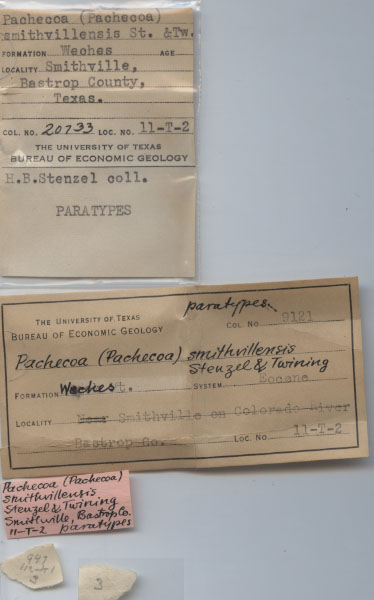 Pachecoa (Pachecoa)
smithvillensis St. &Tw.
FORMATION Weches AGE
LOCALITY Smithville,
Bastrop County,
Texas.
COL. NO. 20733 LOC. NO. 11-T-2
THE UNIVERSITY OF TEXAS
BUREAU OF ECONOMIC GEOLOGY
H.B.Stenzel coll.
PARATYPES
paratypes.
THE UNIVERSITY OF TEXAS
BUREAU OF ECONOMIC GEOLOGY COL. NO. 9121
Pachecoa (Pachecoa) smithvillensis
Stenzel & Twining
FORMATION Weches SYSTEM Eocene
LOCALITY Near Smithville on Colorado River
Bastrop Co. LOC. NO. 11-T-2
Pachecoa (Pachecoa)
smithvillensis
Stenzel & Twining
Smithville, Bastrop Co.
11-T-2 paratypes
3